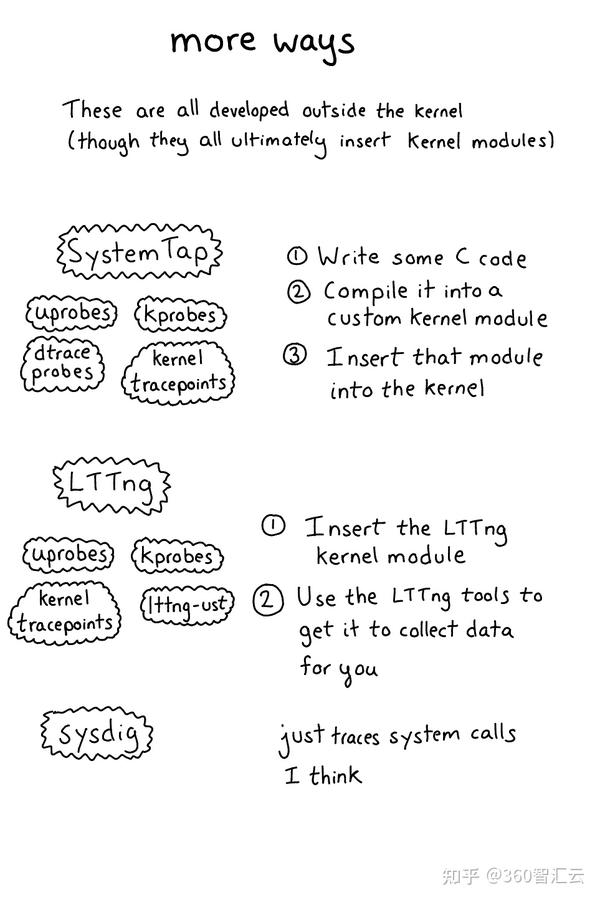 more ways
These are all developed outside the kernel
(though they all ultimately insert kernel modules)
SystemTap
uprobes
kprobes
dtrace
probes
kernel
tracepoints
① Write some C code
② Compile it into a
custom kernel module
③ Insert that module
into the kernel
LTTng
uprobes
kprobes
kernel
tracepoints
lttng-ust
① Insert the LTTng
kernel module
② Use the LTTng tools to
get it to collect data
for you
sysdig
just traces system calls
I think
知乎 @360智汇云